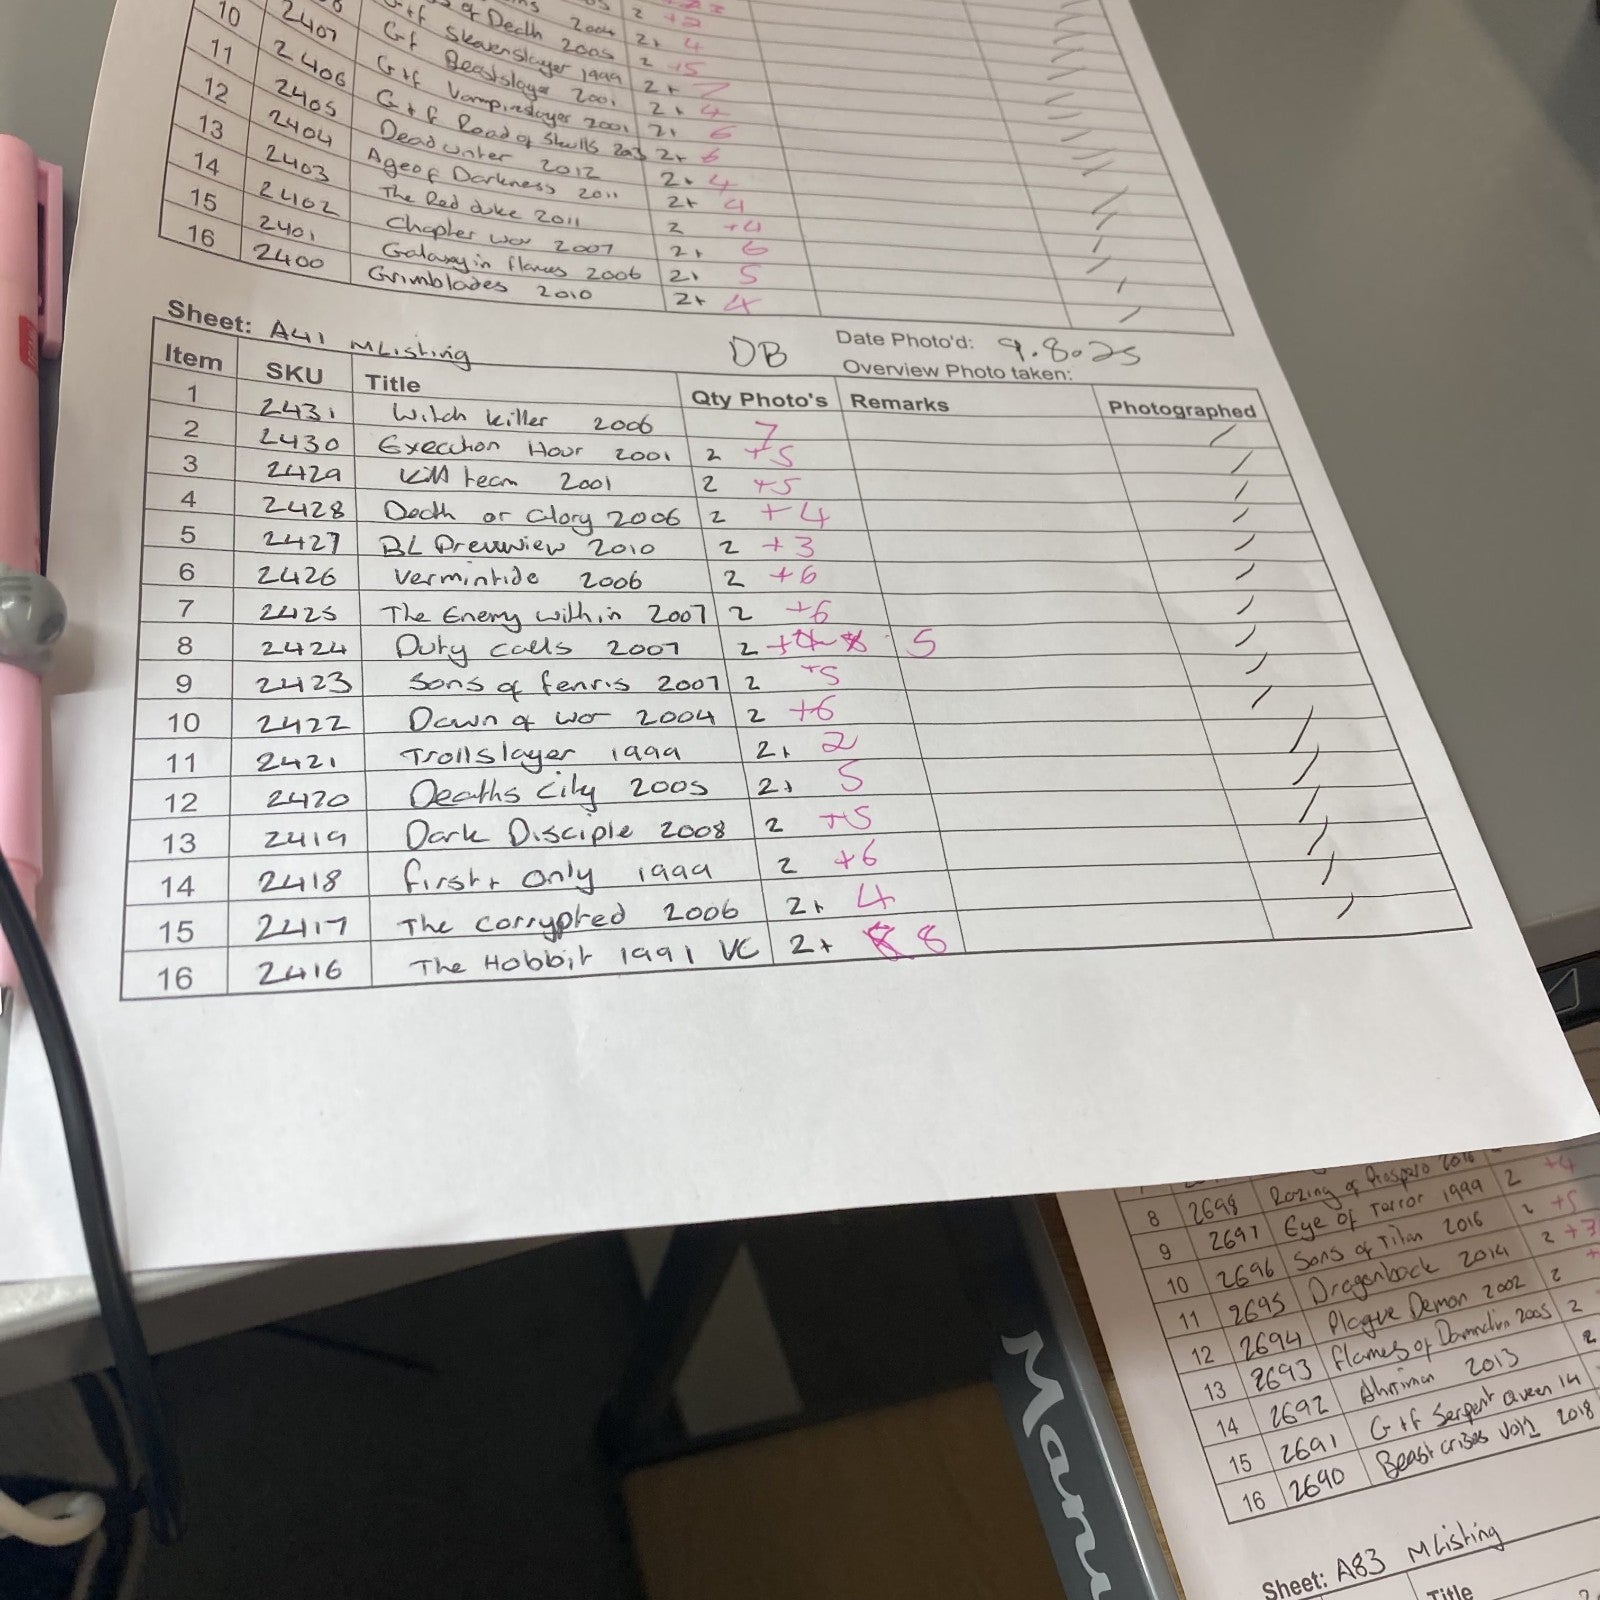 of Death 2004 2 +2
10 2407 G+f Skavenslayer 1999 2+ 4
11 2406 Gf Beastslayer 2001 2 +5
12 2405 G+f Vampireslayer 2001 2+ 7
13 2404 G+f Road of Skulls 2+ 4
14 2403 Dead winter 2012 2+ 6
15 2402 Age of Darkness 2011 2+ 4
16 2401 The Red duke 2011 2+ 4
2400 Chapter war 2007 2 +4
Galaxy in flames 2006 2+ 5
Grimblades 2010 2+ 4
Sheet: A41 MListing DB Date Photo'd: 9.8.25
Overview Photo taken:
Item SKU Title Qty Photo's Remarks Photographed
1 2431 Witch killer 2006 7
2 2430 Execution Hour 2001 2 +5
3 2429 Kill team 2001 2 +5
4 2428 Death or Glory 2006 2 +4
5 2427 BL Prevuview 2010 2 +3
6 2426 Vermintide 2006 2 +6
7 2425 The Enemy within 2007 2 +6
8 2424 Duty calls 2007 2 + 5
9 2423 Sons of fenris 2007 2 +5
10 2422 Dawn of war 2004 2 +6
11 2421 Trollslayer 1999 2+ 2
12 2420 Deaths city 2005 2+ 5
13 2419 Dark Disciple 2008 2 +5
14 2418 first + only 1999 2 +6
15 2417 The corrypted 2006 2+ 4
16 2416 The Hobbit 1991 VC 2+ 8
8 2698 Razing of Prospero 2 +4
9 2697 Eye Of Terror 1999 2 +5
10 2696 Sons of Titan 2016 2 +3
11 2695 Dragonback 2014 2
12 2694 Plague Demon 2002 2
13 2693 flames of Damnation 2005 2
14 2692 Ahriman 2013
15 2691 G+f Serpent Queen 14
16 2690 Beast crises Vol1 2018
Sheet: A83 MListing
Title
Manu